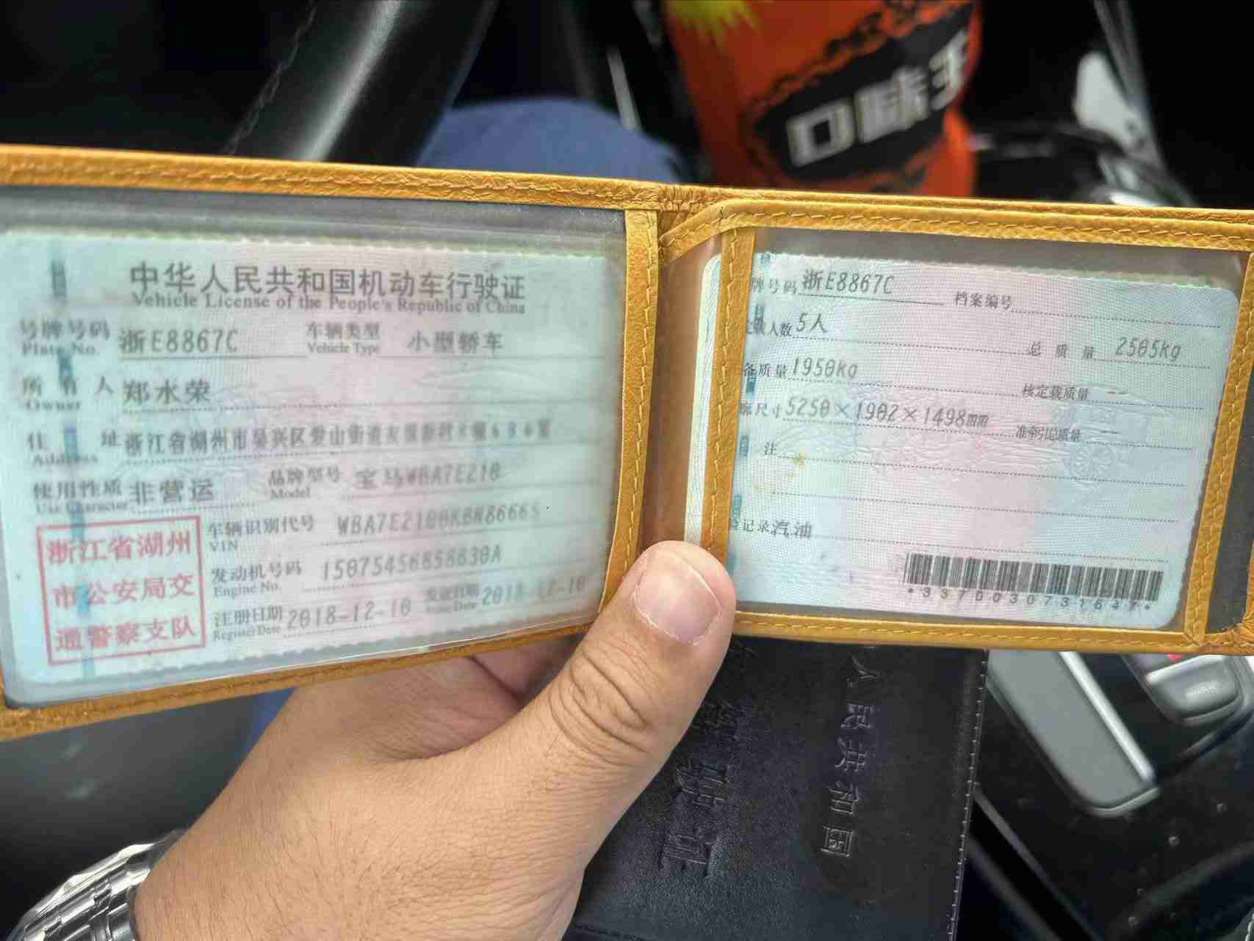 口味王
中华人民共和国机动车行驶证
Vehicle License of the People's Republic of China
号牌号码 浙E8867C 车辆类型 小型轿车
Plate No. Vehicle Type
所有人 郑水荣
Owner
住址 浙江省湖州市吴兴区
Address
使用性质 非营运 品牌型号 宝马WBA7E210
Use Character Model
浙江省湖州
市公安局交
通警察支队
车辆识别代号
VIN
发动机号码
Engine No.
注册日期 2018-12-10 发证日期 2018-12-10
Register Date Issue Date
牌号码 浙E8867C 档案编号
人数 5人 总质量 2505kg
备质量 1950kg 核定载质量 --
尺寸 5250×1902×1498mm 准牵引总质量 --
注
记录 汽油
*3370030731647*
人民共和国
驾驶证